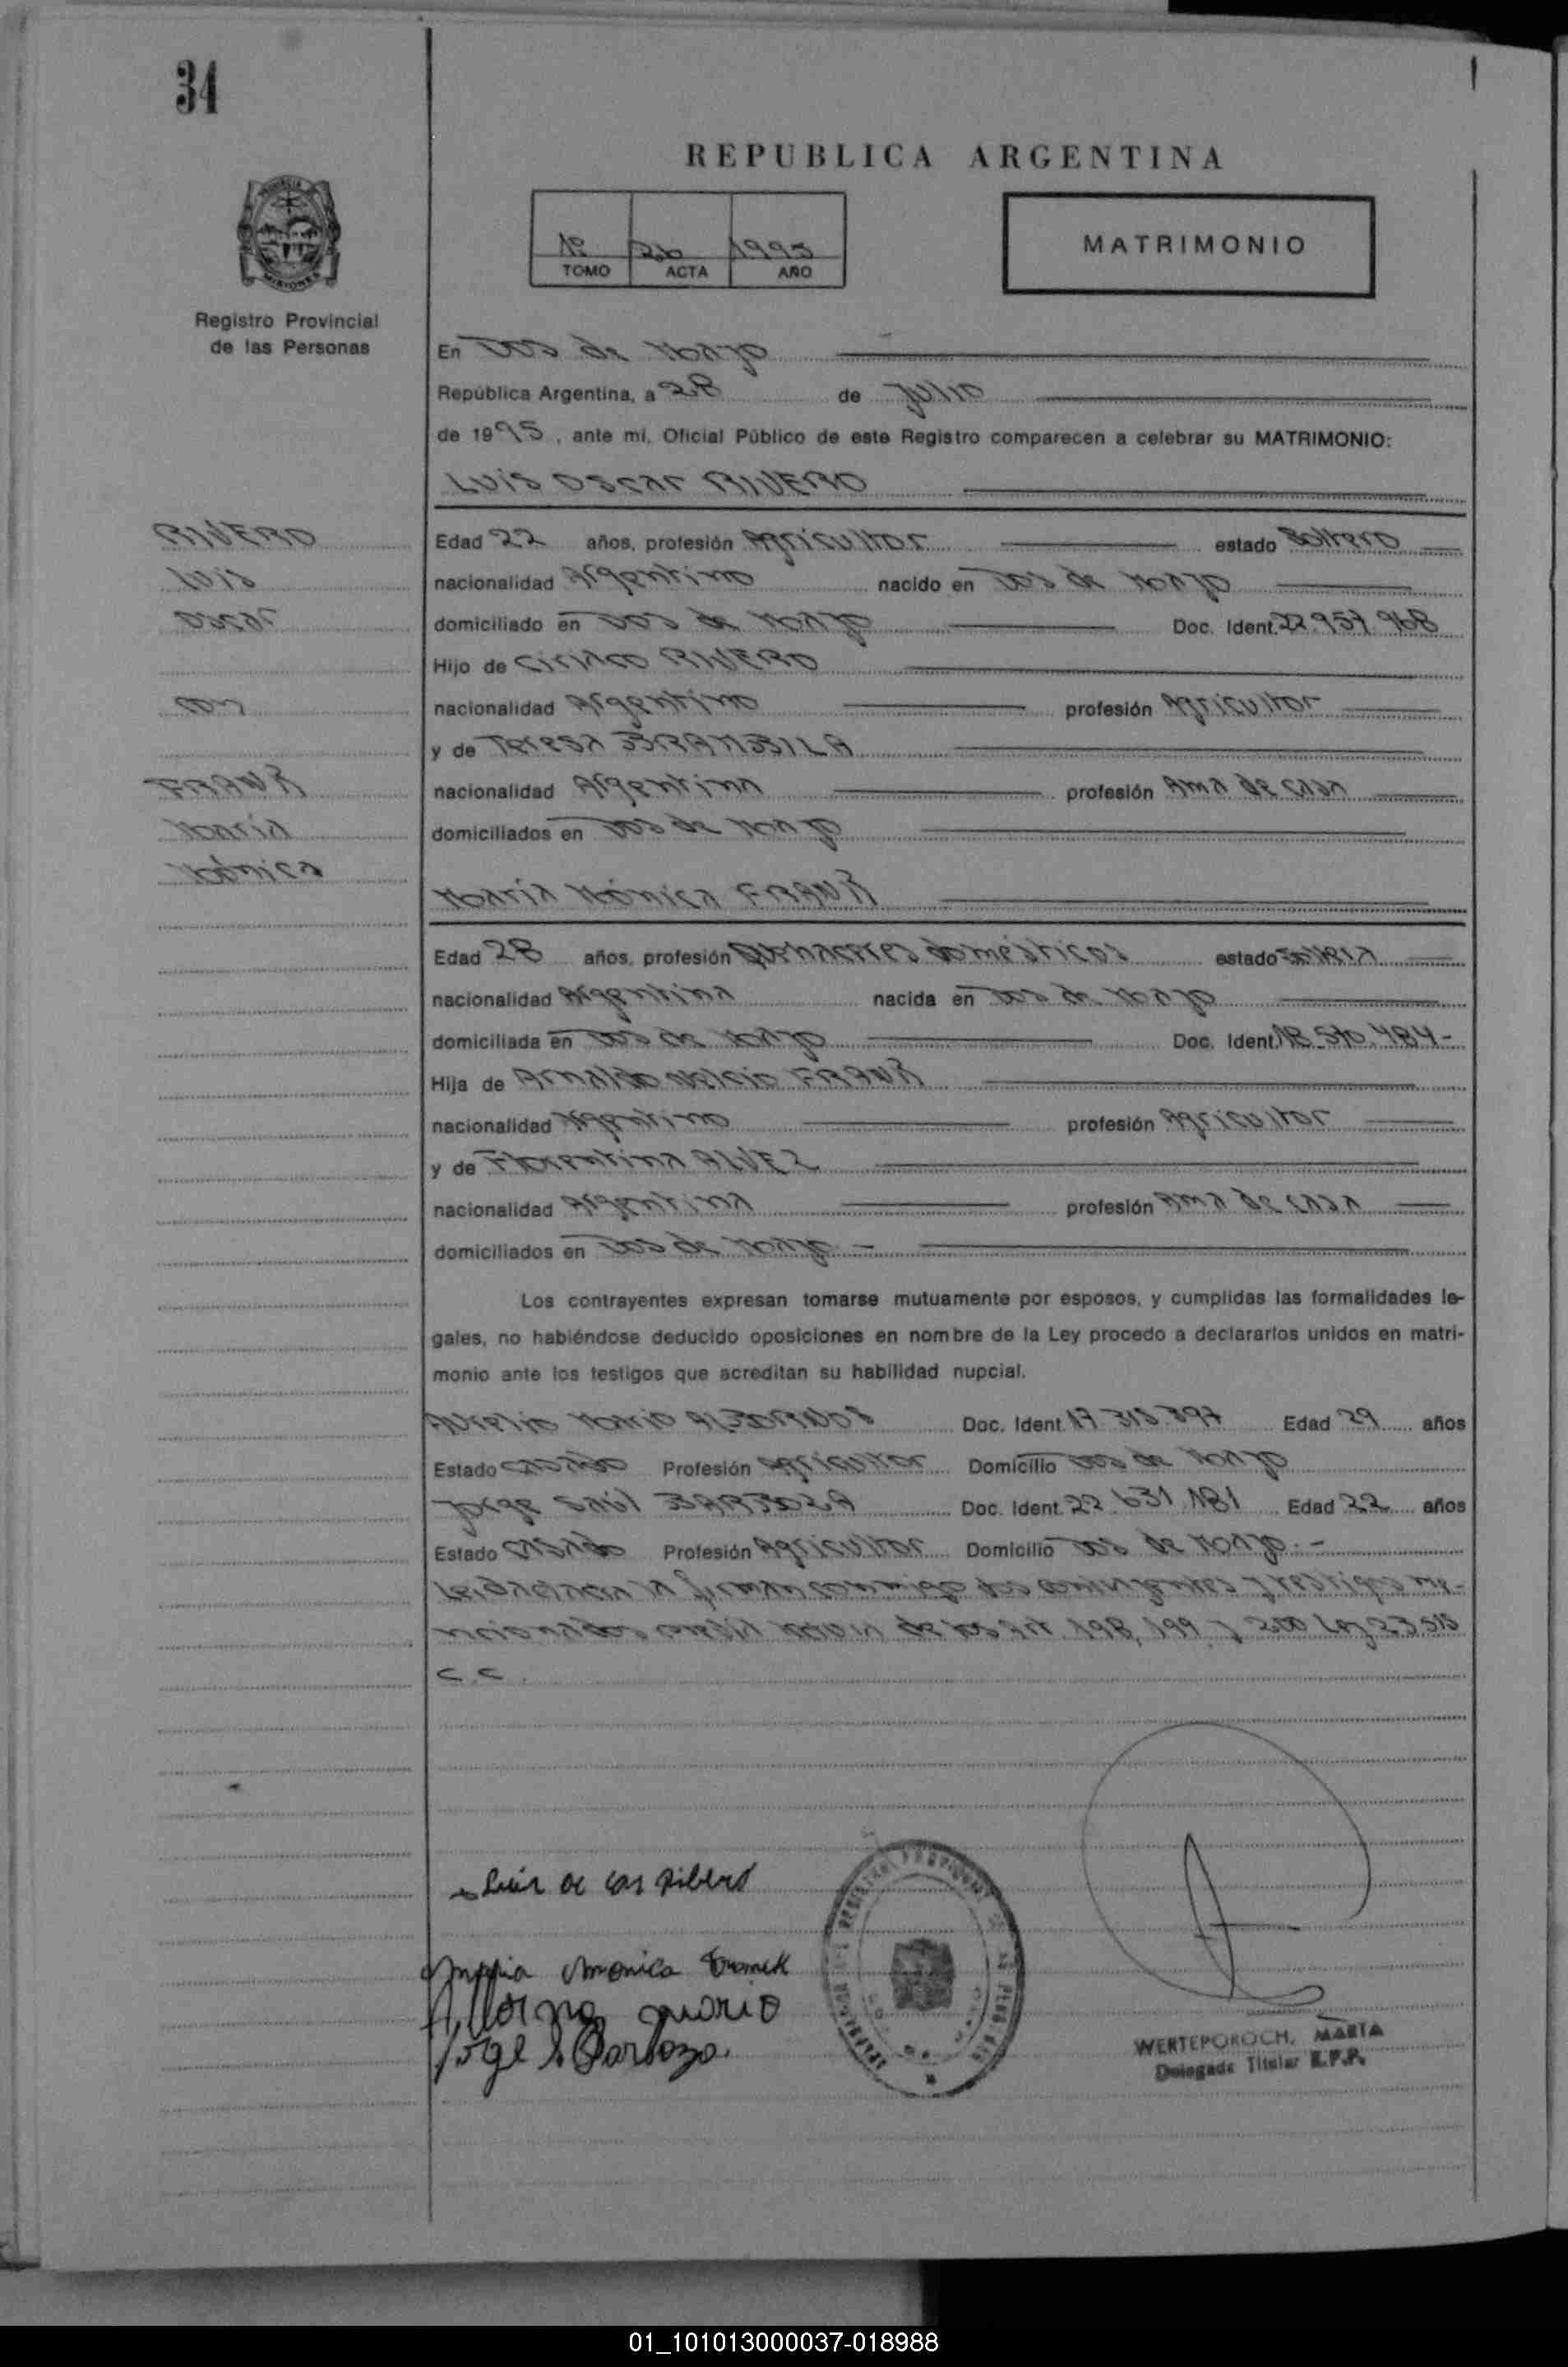 34
REPUBLICA ARGENTINA
1º 26 1995
TOMO ACTA AÑO
MATRIMONIO
Registro Provincial
de las Personas
En Dos de Mayo
República Argentina, a 28 de Julio
de 1995, ante mi, Oficial Público de este Registro comparecen a celebrar su MATRIMONIO:
Luis Oscar RIVERO
RIVERO
Luis
Oscar
con
FRANK
María
Mónica
Edad 22 años, profesión Agricultor estado Soltero
nacionalidad Argentino nacido en Dos de Mayo
domiciliado en Dos de Mayo Doc. Ident. 22.957.968
Hijo de Ciriaco RIVERO
nacionalidad Argentino profesión Agricultor
y de Teresa BRAMBILA
nacionalidad Argentina profesión Ama de casa
domiciliados en Dos de Mayo
María Mónica FRANK
Edad 28 años, profesión Quehaceres domésticos estado Soltera
nacionalidad Argentina nacida en Dos de Mayo
domiciliada en Dos de Mayo Doc. Ident. 18.570.484-
Hija de Arnaldo FRANK
nacionalidad Argentino profesión Agricultor
y de Florentina ALVEZ
nacionalidad Argentina profesión Ama de casa
domiciliados en Dos de Mayo -
Los contrayentes expresan tomarse mutuamente por esposos, y cumplidas las formalidades le-
gales, no habiéndose deducido oposiciones en nombre de la Ley procedo a declararlos unidos en matri-
monio ante los testigos que acreditan su habilidad nupcial.
Aurelio Mario ALBORNOS Doc. Ident. 17.315.897 Edad 29 años
Estado casado Profesión Agricultor Domicilio Dos de Mayo
Jorge Saúl BARBOZA Doc. Ident. 22.631.181 Edad 22 años
Estado casado Profesión Agricultor Domicilio Dos de Mayo.-
Leída el acta la firman conmigo los contrayentes y testigos me-
ncionados de los Art. 198, 199 y 200 Ley 23.515
C.C.
Luis Os car Ribero
Maria Monica Franck
Albornos Mario
Jorge S Barboza
WERTEPOROCH, MARTA
Delegada Titular R.P.P.
01_101013000037-018988